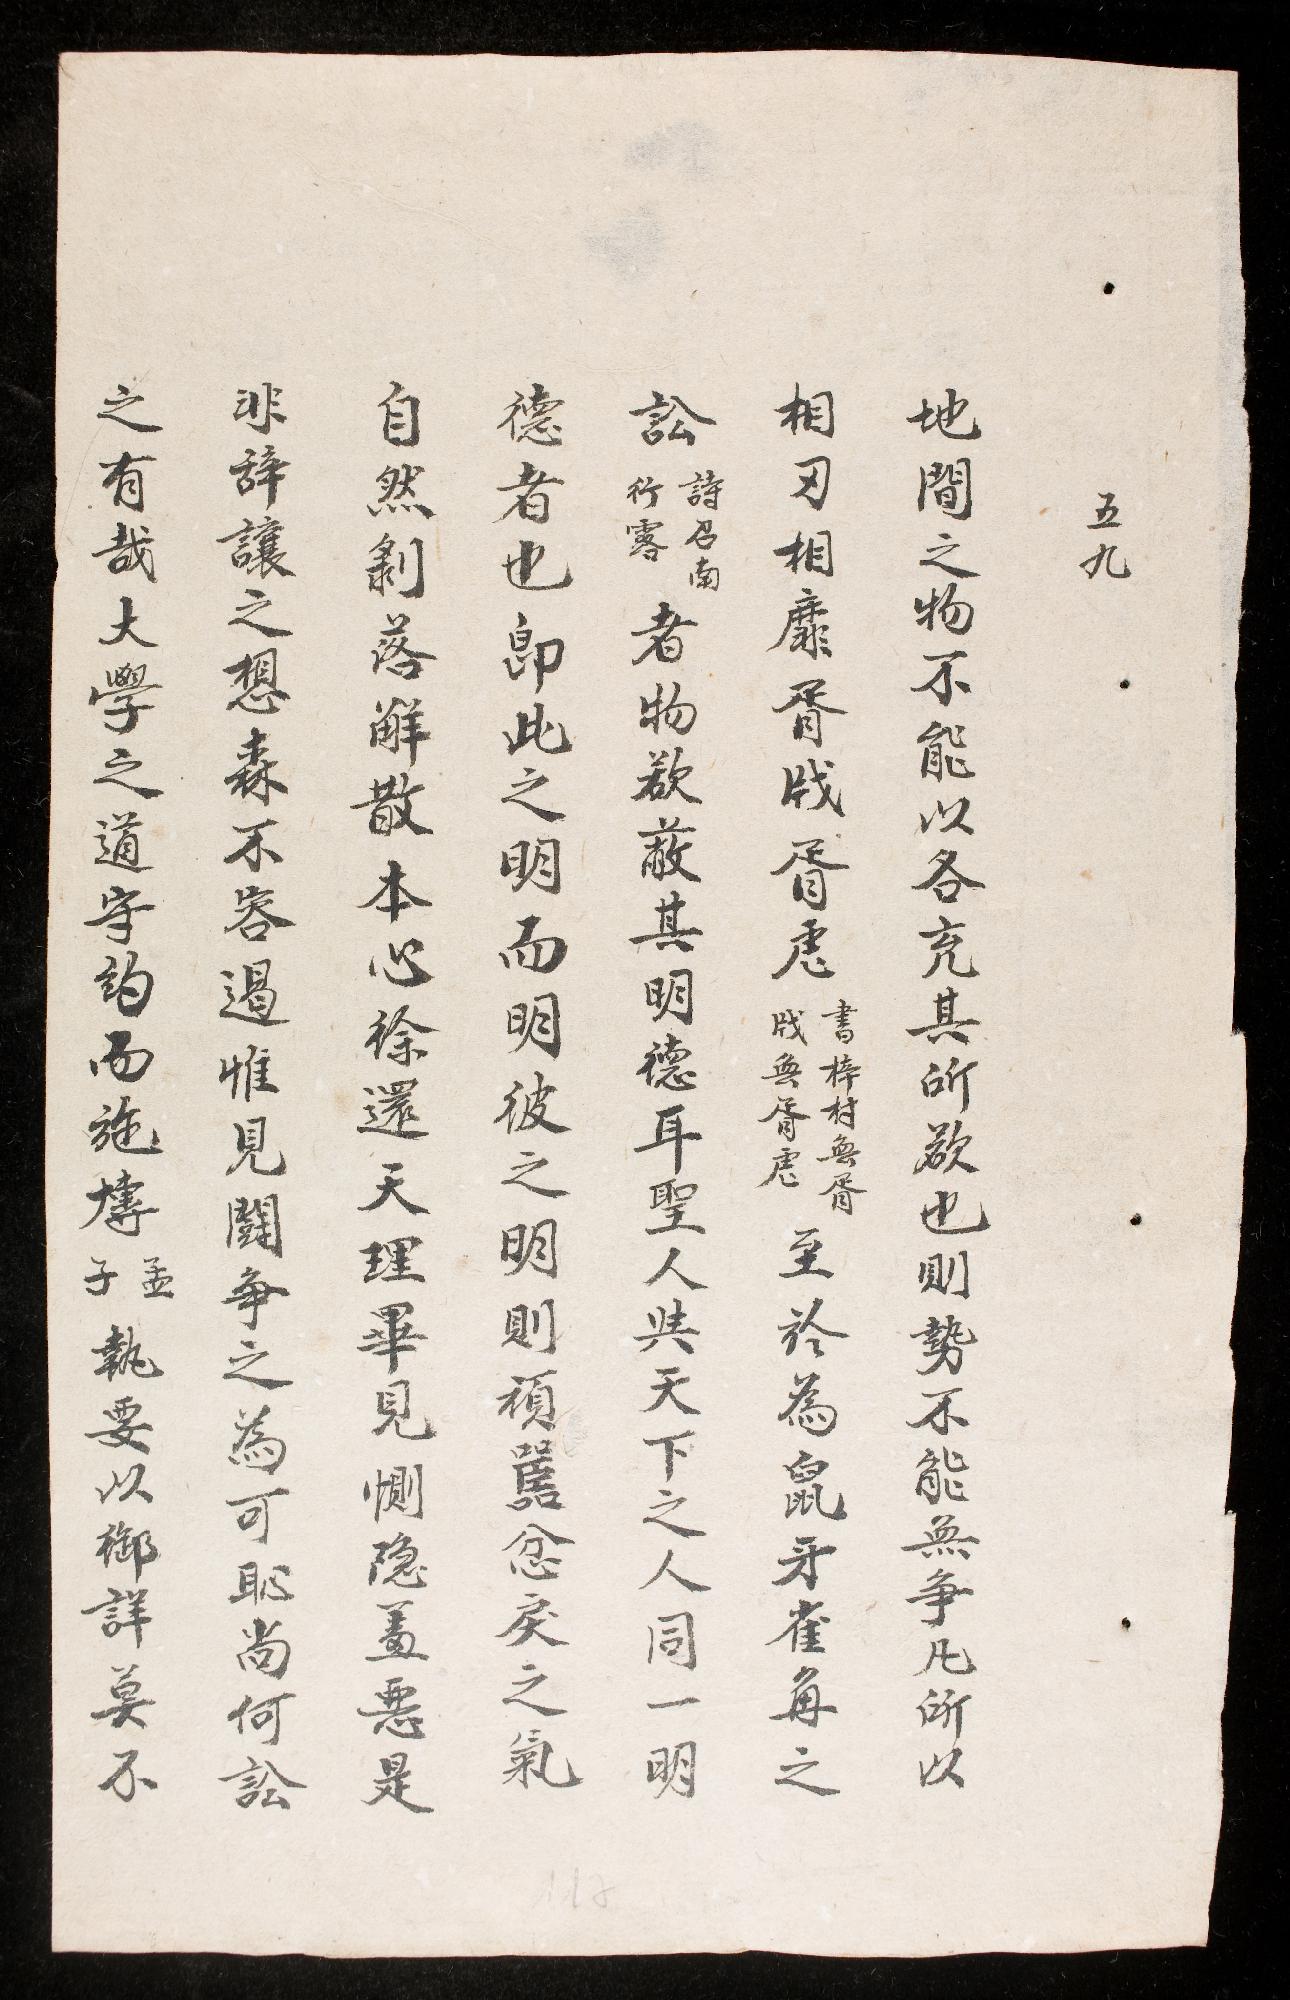 五九
地間之物不能以各充其所欲也則勢不能無争凡所以
相刃相靡胥戕胥虐書梓材無胥戕無胥虐至於為鼠牙雀角之
訟詩召南行露者物欲蔽其明德耳聖人與天下之人同一明
德者也即此之明而明彼之明則頑嚚忿戾之氣
自然剝落解散本心徐還天理畢見惻隐羞惡是
非辞讓之想森不容遏惟見鬪争之為可恥尚何訟
之有哉大學之道守約而施慱孟子執要以御詳莫不